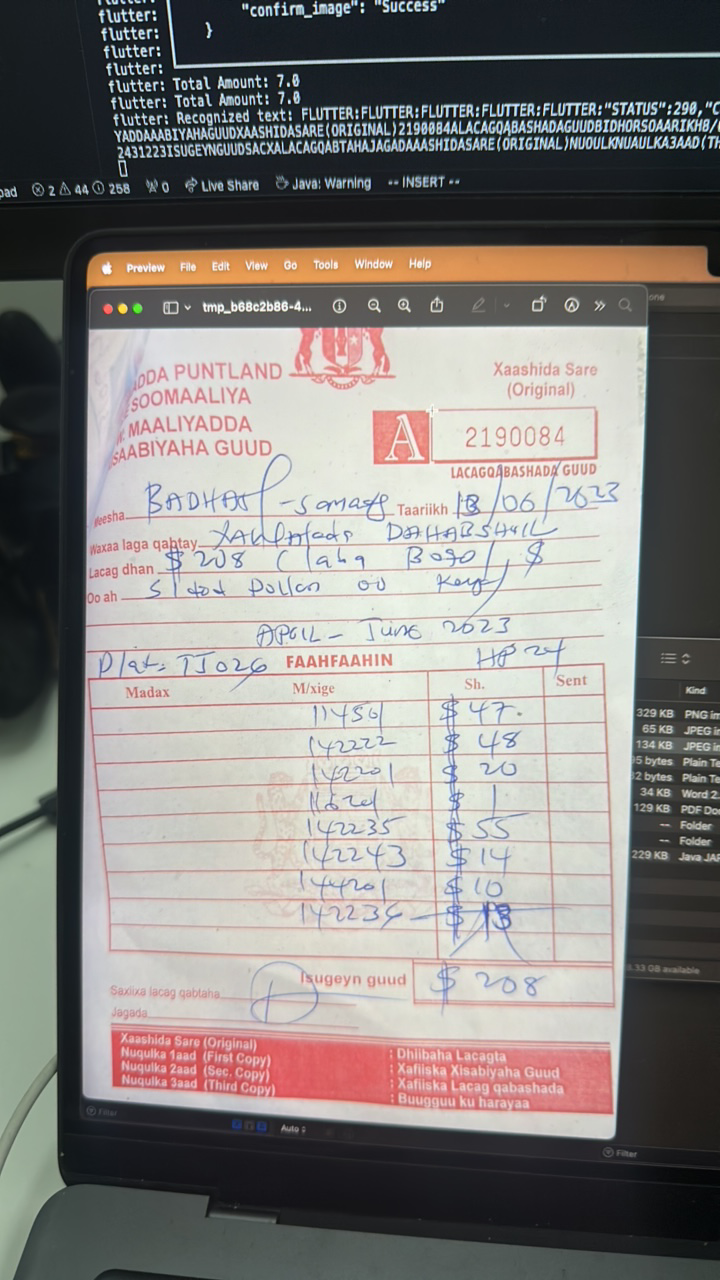 flutter:
flutter: "confirm_image": "Success"
flutter: }
flutter:
flutter:
flutter: Total Amount: 7.0
flutter: Total Amount: 7.0
flutter: Recognized text: FLUTTER:FLUTTER:FLUTTER:FLUTTER:FLUTTER:"STATUS":290,"C
YADDAAABIYAHAGUUDXAASHIDASARE(ORIGINAL)2190084ALACAGQABASHADAGUUDBIDHORSOAARIKHB/
2431223ISUGEYNGUUDSACXALACAGQABTAHAJAGADAAASHIDASARE(ORIGINAL)NUOULKNUAULKA3AAD(TH
pad 2 44 258 0 Live Share Java: Warning -- INSERT --
Preview File Edit View Go Tools Window Help
tmp_b68c2b86-4...
one
ADDA PUNTLAND
SOOMAALIYA
MAALIYADDA
SAABIYAHA GUUD
Xaashida Sare
(Original)
A 2190084
LACAGQABASHADA GUUD
Meesha Taariikh 13/06/2023
Waxaa laga qabtay DAHABSHIIL
Lacag dhan $ 208 (laba Boqol $
Oo ah
APRIL - June 2023
Plat: TJ026 FAAHFAAHIN HP 24
Madax M/xige Sh. Sent
11451 $ 47.
142222 $ 48
142201 $ 20
$ 1
142235 $ 55
142243 $ 14
144201 $ 10
142236 $
Isugeyn guud $ 208
Saxiixa lacag qabtaha
Jagada
Xaashida Sare (Original) : Dhiibaha Lacagta
Nuqulka 1aad (First Copy) : Xafiiska Xisabiyaha Guud
Nuqulka 2aad (Sec. Copy) : Xafiiska Lacag qabashada
Nuqulka 3aad (Third Copy) : Buugguu ku harayaa
Kind
329 KB PNG im
65 KB JPEG i
134 KB JPEG i
5 bytes Plain Te
2 bytes Plain Te
34 KB Word 2
129 KB PDF Do
-- Folder
-- Folder
229 KB Java JAR
GB available
Filter
Auto
Filter